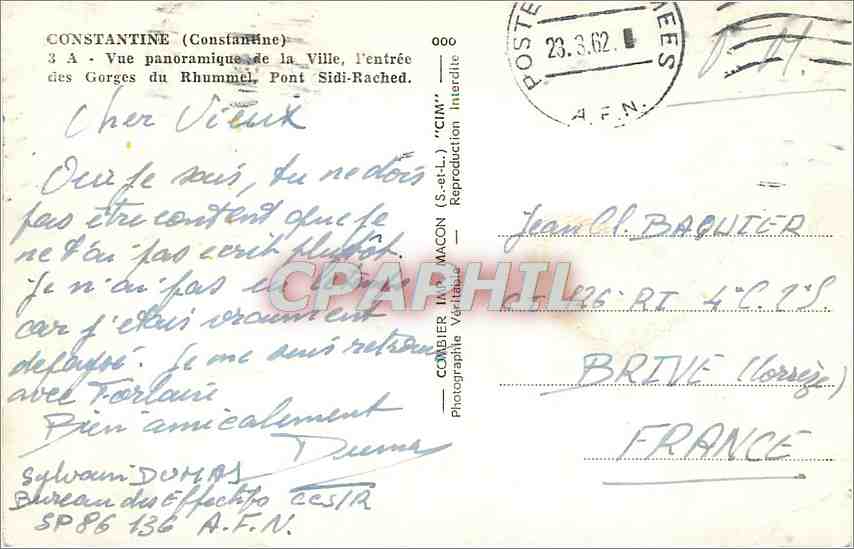 CONSTANTINE (Constantine)
3 A - Vue panoramique de la Ville, l'entrée
des Gorges du Rhummel, Pont Sidi-Rached.
Cher Vieux
Oui je sais, tu ne dois
pas être content que je
ne t'ai pas ecrit plutôt.
Je n'ai pas eu le temps
car j'etais vraiment
defaysé. Je me suis retrouvé
avec Forlani
Bien amicalement
Dumas
Sylvain DUMAS
Bureau des Effectifs CCS/IR
SP 86 136 A.F.N.
000
COMBIER IMP. MACON (S.-et-L.) "CIM"
Photographie Véritable — Reproduction Interdite
POSTE
MEES
23.3.62.
A.F.N.
F. M.
Jean Cl. BAQUIER
CI 126e RI 4e C. 2e S.
BRIVE (Corrèze)
FRANCE
CPARPHIL